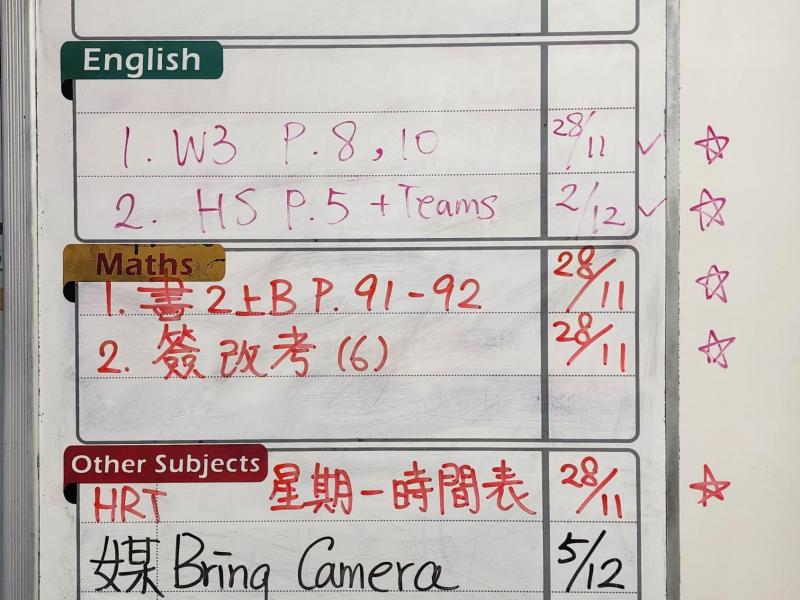 English
1. W3 P. 8, 10 28/11
2. HS P. 5 + Teams 2/12
Maths
1. 書2上B P. 91-92 28/11
2. 簽改考(6) 28/11
Other Subjects
HRT 星期一時間表 28/11
媒 Bring Camera 5/12